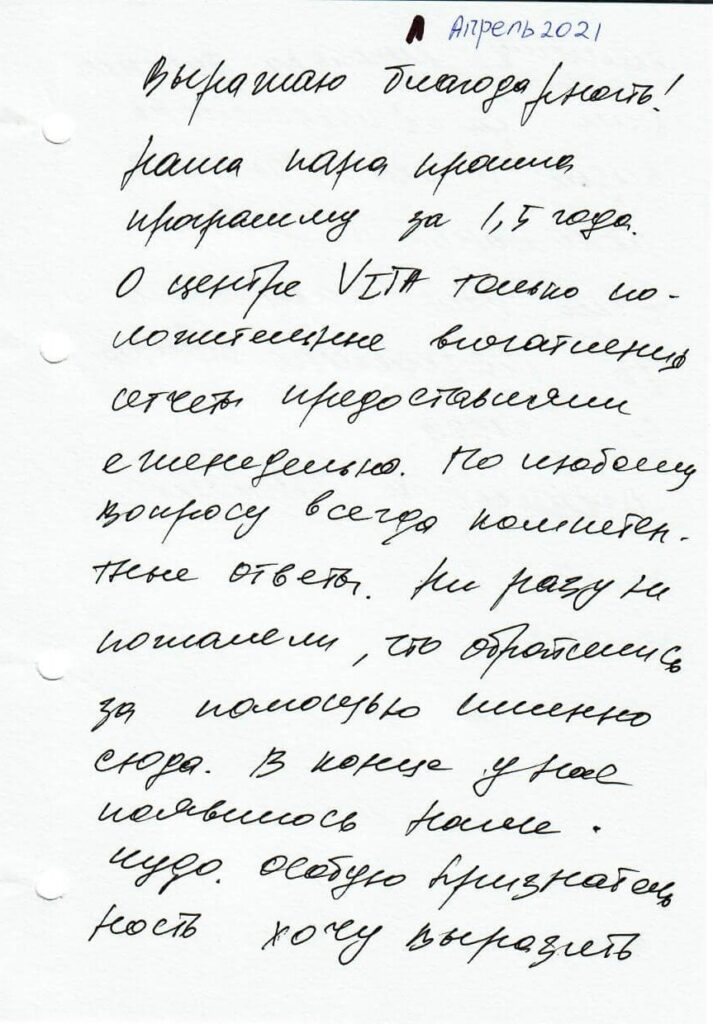 Апрель 2021
Выражаю благодарность!
Наша пара прошла
программу за 1,5 года.
О центре VITA только по-
ложительные впечатления
отчеты предоставляли
еженедельно. По любому
вопросу всегда компетен-
тные ответы. Ни разу не
пожалели, что обратились
за помощью именно
сюда. В конце у нас
появилось наше
чудо. Особую признатель
ность хочу выразить